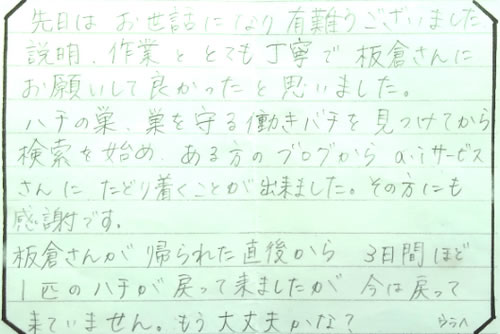 先日は お世話になり 有難うございました
説明、作業と とても丁寧で 板倉さんに
お願いして良かったと思いました。
ハチの巣、巣を守る働きバチを見つけてから
検索を始め、ある方のブログから a.iサービス
さんに たどり着くことが出来ました。その方にも
感謝です。
板倉さんが 帰られた直後から 3日間ほど
1匹のハチが戻って来ましたが 今は戻って
来ていません。もう大丈夫かな？